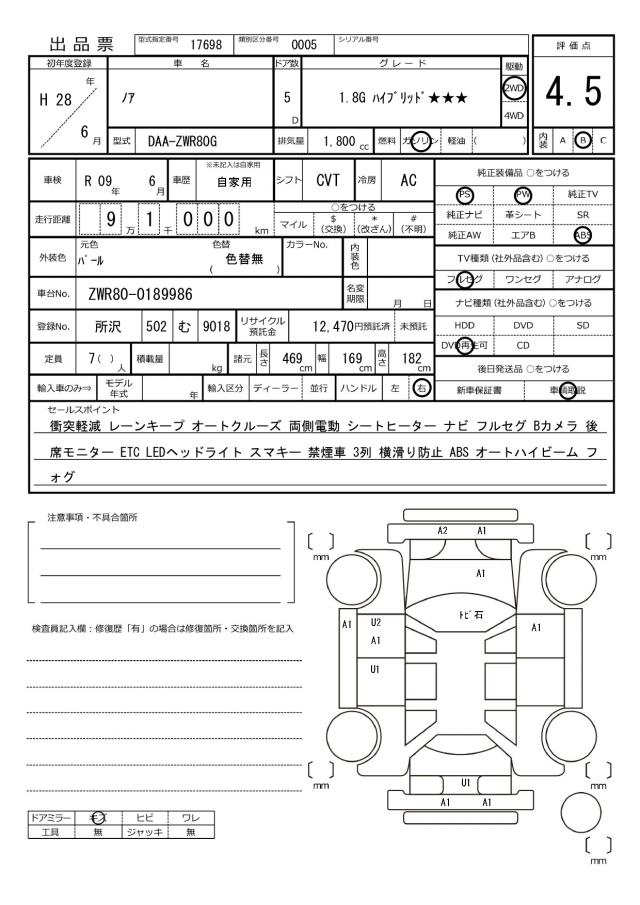 出品票 型式指定番号 17698 類別区分番号 0005 シリアル番号
評価点
4.5
内装 A B C
初年度登録 車名 ドア数 グレード 駆動
H 28 年 6 月
ノア 5 D 1.8G ハイブリッド★★★ 2WD
4WD
型式 DAA-ZWR80G 排気量 1,800 cc 燃料 ガソリン 軽油 ( )
車検 R 09 年 6 月 車歴 ※未記入は自家用 自家用 シフト CVT 冷房 AC
走行距離 9 万 1 千 0 0 0 km
○をつける
マイル $ (交換) * (改ざん) # (不明)
外装色 元色 パール 色替 ( 色替無 ) カラーNo. 内装色
車台No. ZWR80-0189986 名変期限 月 日
登録No. 所沢 502 む 9018 リサイクル預託金 12,470円預託済 未預託
定員 7 ( ) 人 積載量 kg 諸元 長さ 469 cm 幅 169 cm 高さ 182 cm
輸入車のみ⇒ モデル年式 年 輸入区分 ディーラー 並行 ハンドル 左 右
純正装備品 ○をつける
PS PW 純正TV
純正ナビ 革シート SR
純正AW エアB ABS
TV種類 (社外品含む) ○をつける
フルセグ ワンセグ アナログ
ナビ種類 (社外品含む) ○をつける
HDD DVD SD
DVD再生可 CD
後日発送品 ○をつける
新車保証書 車輌取説
セールスポイント
衝突軽減 レーンキープ オートクルーズ 両側電動 シートヒーター ナビ フルセグ Bカメラ 後
席モニター ETC LEDヘッドライト スマキー 禁煙車 3列 横滑り防止 ABS オートハイビーム フ
ォグ
注意事項・不具合箇所
検査員記入欄：修復歴「有」の場合は修復箇所・交換箇所を記入
ドアミラー キズ ヒビ ワレ
工具 無 ジャッキ 無
A2 A1
mm mm
A1
トビ石
A1 U2 A1
A1
U1
mm mm
U1
A1 A1
mm